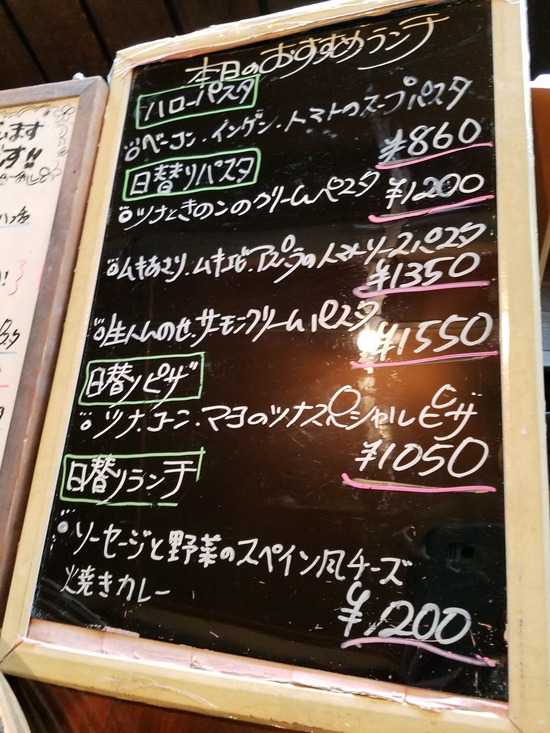 本日のおすすめランチ
ハローパスタ
ベーコン・インゲン・トマトのスープパスタ
¥860
日替りパスタ
ツナときのこのクリームパスタ ¥1200
ムキあさり・ムキエビ・アスパラのトマトソースパスタ
¥1350
生ハムのせ・サーモンクリームパスタ
¥1550
日替りピザ
ツナ・コーン・マヨのツナスペシャルピザ
¥1050
日替りランチ
ソーセージと野菜のスペイン風チーズ
焼きカレー
¥1200